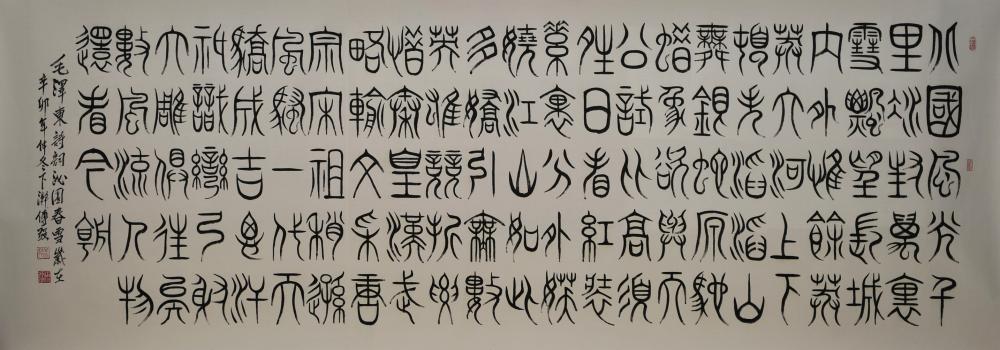 北國風光千
里冰封萬裏
雪飄望長城
內外惟餘莽
莽大河上下
頓失滔滔山
舞銀蛇原馳
蠟象欲與天
公試比高須
晴日看紅裝
素裹分外妖
嬈江山如此
多嬌引無數
英雄競折腰
惜秦皇漢武
略輸文采唐
宗宋祖稍遜
風騷一代天
驕成吉思汗
祇識彎弓射
大雕俱往矣
數風流人物
還看今朝
毛澤東詩詞沁園春雪歲在
辛卯年仲冬